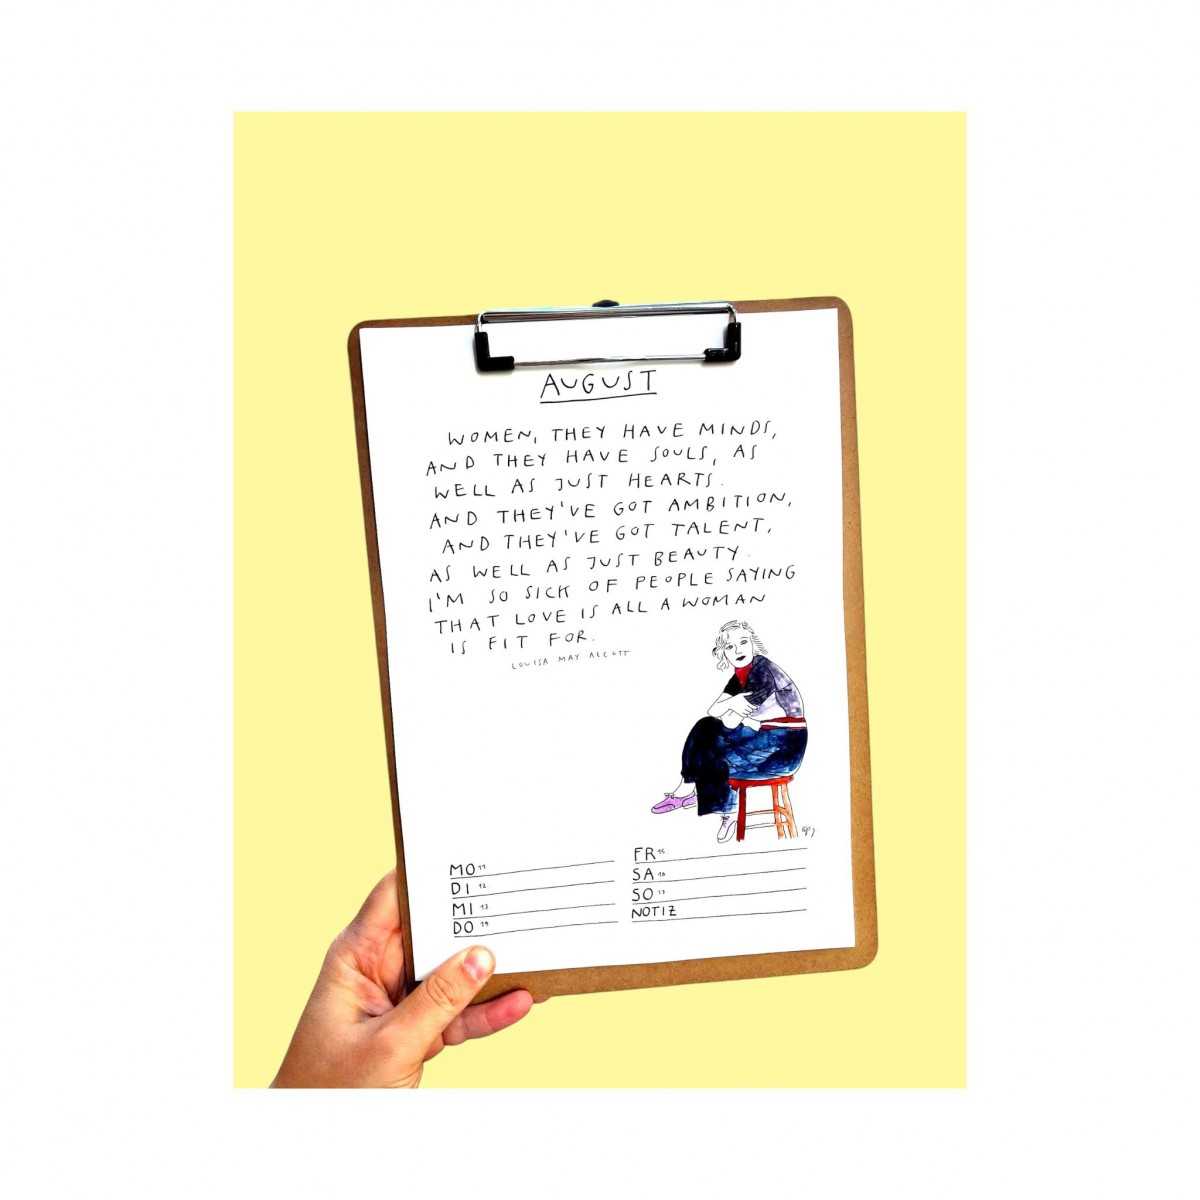 AUGUST
WOMEN, THEY HAVE MINDS,
AND THEY HAVE SOULS, AS
WELL AS JUST HEARTS.
AND THEY'VE GOT AMBITION,
AND THEY'VE GOT TALENT,
AS WELL AS JUST BEAUTY.
I'M SO SICK OF PEOPLE SAYING
THAT LOVE IS ALL A WOMAN
IS FIT FOR.
LOUISA MAY ALCOTT
MO 11
DI 12
MI 13
DO 14
FR 15
SA 16
SO 17
NOTIZ